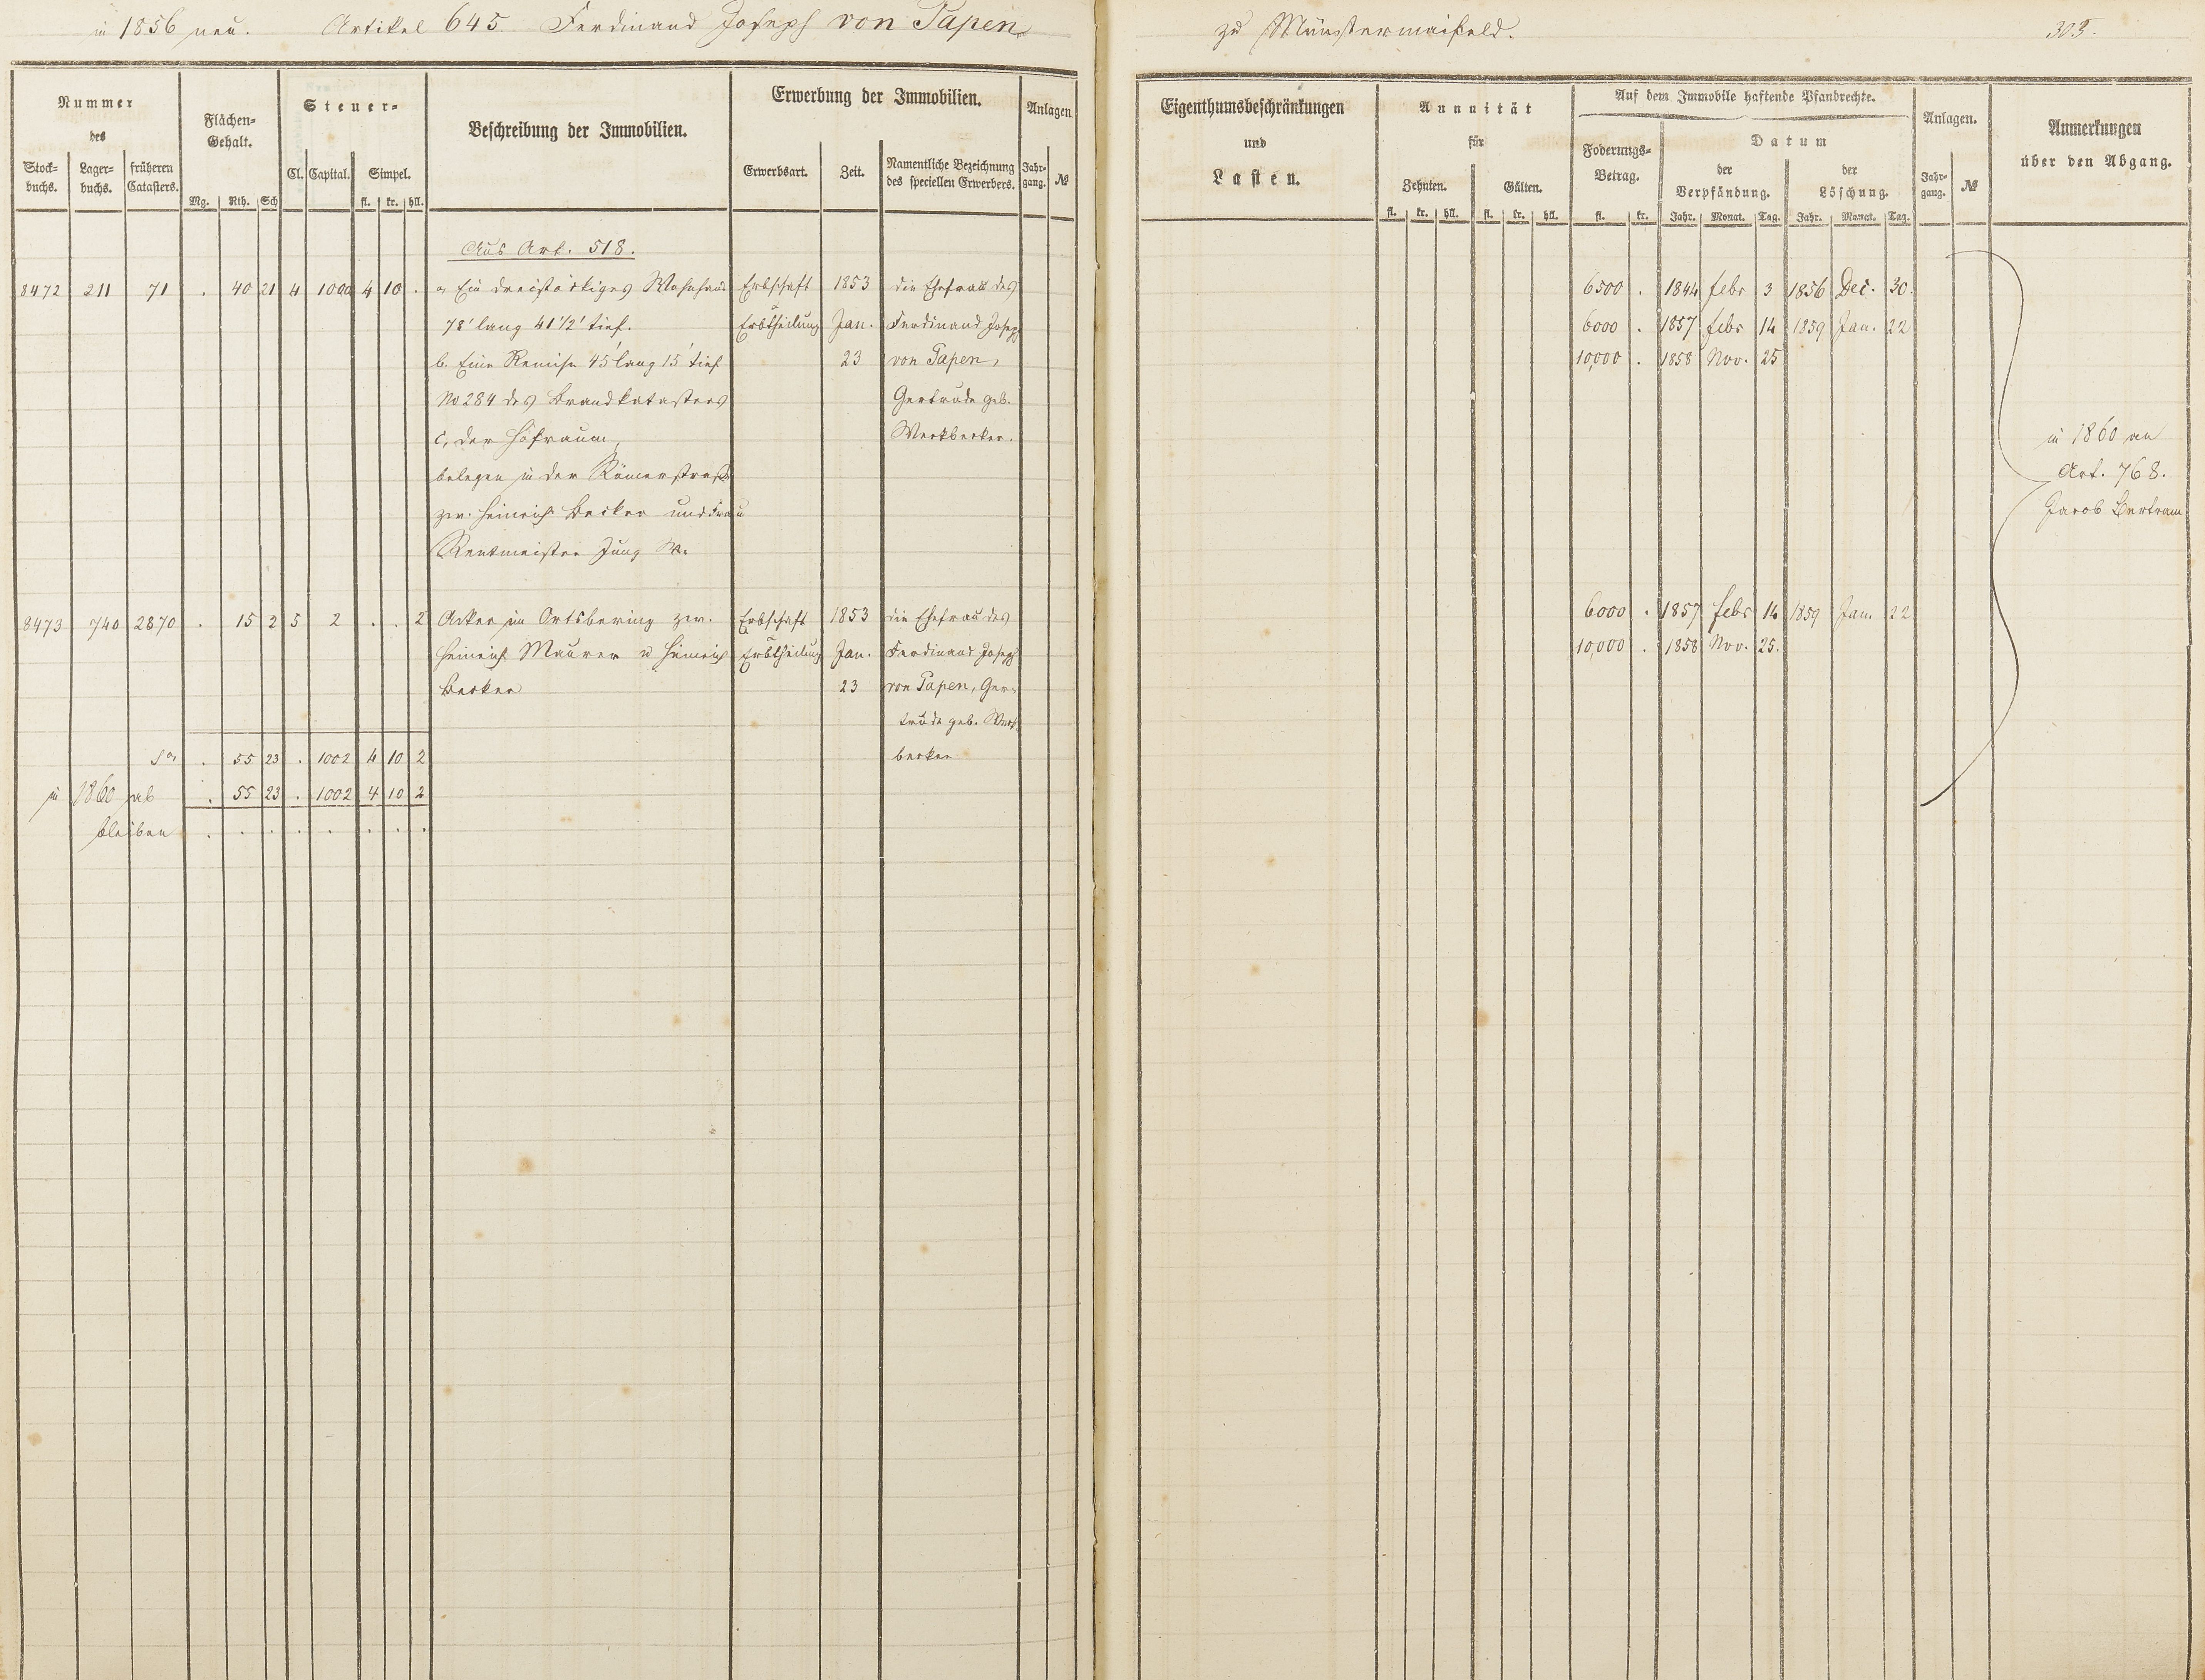 in 1856 neu. Artikel 645 Ferdinand Joseph von Papen
Nummer
des
Stock-
buchs.
Lager-
buchs.
früheren
Catasters.
Flächen-
Gehalt.
Mg. Rth. Sch
Steuer-
Cl. Capital. Simpel.
fl. kr. hll.
Beschreibung der Immobilien.
Erwerbung der Immobilien.
Erwerbsart. Zeit.
Namentliche Bezeichnung
des speciellen Erwerbers.
Anlagen
Jahr-
gang. №
Aus Art. 518.
8472 211 71 . 40 21 4 1000 4 10 . a, Ein dreistöckiges Wohnhaus Erbschaft 1853 die Ehefrau des
78' lang 41 1/2' tief. Erbtheilung Jan. Ferdinand Joseph
b. Eine Remise 45' lang 15' tief 23 von Papen,
No 284 des Brandkatasters Gertrude geb.
c, der Hofraum, Werkbecker.
belegen in der Römerstraße
zw. Heinrich Becker und Frau
Rentmeister Jung W.
8473 740 2870 . 15 2 5 2 . . 2 Acker im Ortsbering zw. Erbschaft 1853 die Ehefrau des
Heinrich Maurer u Heinrich Erbtheilung Jan. Ferdinand Joseph
Becker 23 von Papen, Ger-
trude geb. Werk-
becker
Sa . 55 23 . 1002 4 10 2
in 1860 ab . 55 23 . 1002 4 10 2
bleiben . . . . . . . .
zu Münstermaifeld. 303.
Eigenthumsbeschränkungen
und
Lasten.
Annuität
für
Zehnten. Gülten.
fl. kr. hll. fl. kr. hll.
Auf dem Immobile haftende Pfandrechte.
Foderungs-
Betrag.
fl. kr.
Datum
der
Verpfändung.
der
Löschung.
Jahr. Monat. Tag. Jahr. Monat. Tag.
Anlagen.
Jahr-
gang. №
Anmerkungen
über den Abgang.
6500 . 1844 febr 3 1856 Dec. 30.
6000 . 1857 febr 14 1859 Jan. 22
10,000 . 1858 Nov. 25
in 1860 an
Art. 768.
Jacob Bertram
6000 . 1857 febr 14 1859 Jan. 22
10,000 . 1858 Nov. 25.